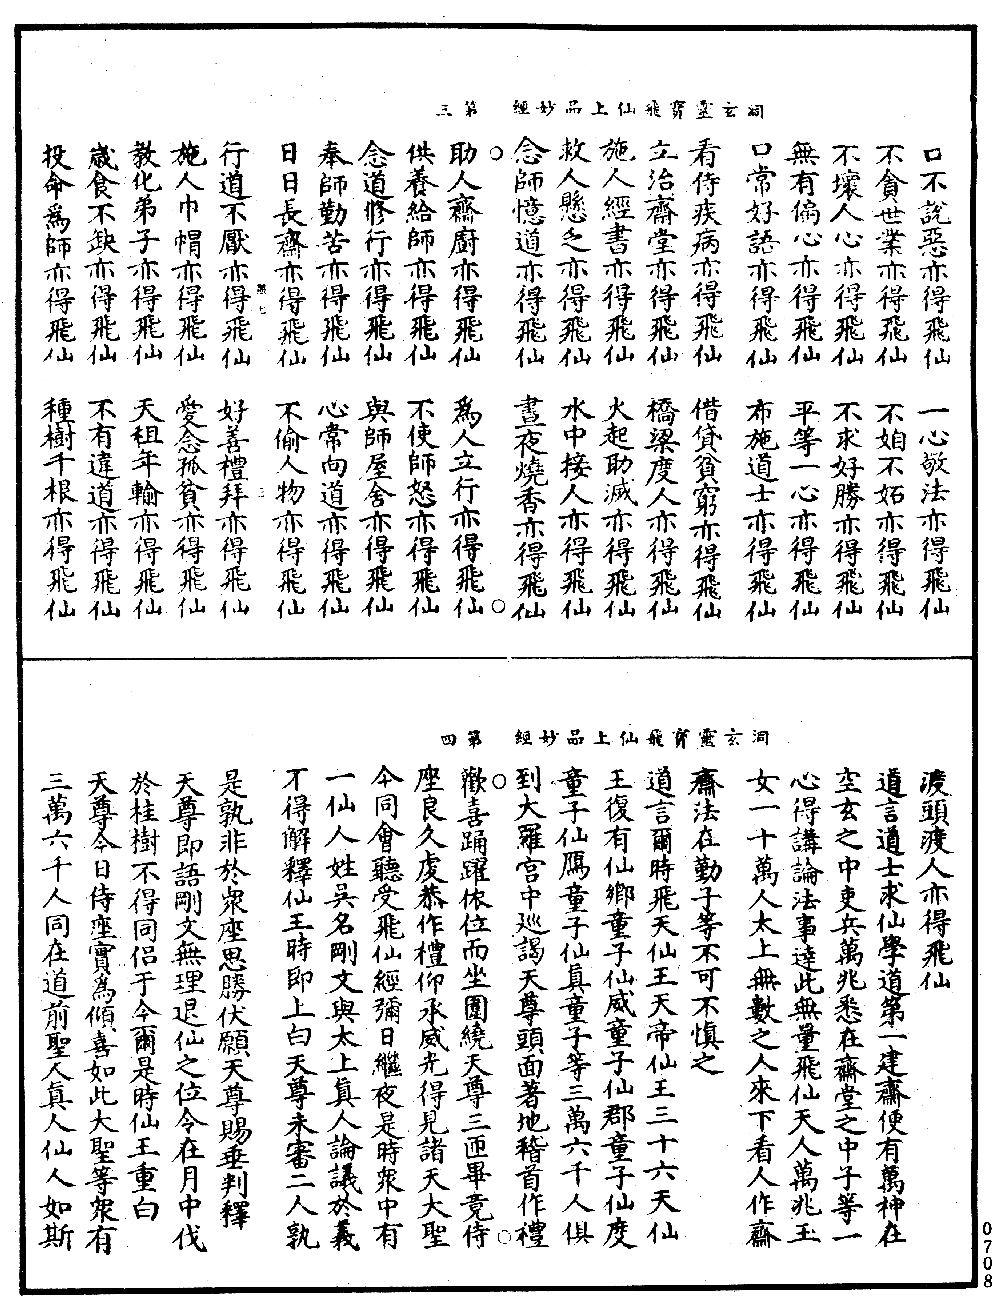 洞玄靈寶飛仙上品妙經　第三
口不說惡亦得飛仙　一心敬法亦得飛仙
不貪世業亦得飛仙　不妲不妬亦得飛仙
不壞人心亦得飛仙　不求好勝亦得飛仙
無有偏心亦得飛仙　平等一心亦得飛仙
口常好語亦得飛仙　布施道士亦得飛仙
看侍疾病亦得飛仙　借貸貧窮亦得飛仙
立治齋堂亦得飛仙　橋梁度人亦得飛仙
施人經書亦得飛仙　火起助滅亦得飛仙
救人懸乏亦得飛仙　水中接人亦得飛仙
念師憶道亦得飛仙　晝夜燒香亦得飛仙
助人齋廚亦得飛仙　爲人立行亦得飛仙
供養給師亦得飛仙　不使師怒亦得飛仙
念道修行亦得飛仙　與師屋舍亦得飛仙
奉師勤苦亦得飛仙　心常向道亦得飛仙
日日長齋亦得飛仙　不偷人物亦得飛仙
行道不厭亦得飛仙　好善禮拜亦得飛仙
施人巾帽亦得飛仙　愛念孤貧亦得飛仙
教化弟子亦得飛仙　天租年輸亦得飛仙
歲食不缺亦得飛仙　不有違道亦得飛仙
投命爲師亦得飛仙　種樹千根亦得飛仙
洞玄靈寶飛仙上品妙經　第四
渡頭渡人亦得飛仙
道言道士求仙學道第一建齋便有萬神在
空玄之中吏兵萬兆悉在齋堂之中子等一
心得講論法事達此無量飛仙天人萬兆玉
女一十萬人太上無數之人來下看人作齋
齋法在勤子等不可不慎之
道言爾時飛天仙王天帝仙王三十六天仙
王復有仙鄉童子仙威童子仙郡童子仙度
童子仙鴈童子仙眞童子等三萬六千人俱
到大羅宫中巡謁天尊頭面著地稽首作禮
歡喜踊躍依位而坐圍繞天尊三匝畢竟侍
座良久虔恭作禮仰承威光得見諸天大聖
今同會聽受飛仙經彌日繼夜是時衆中有
一仙人姓吳名剛文與太上眞人論議於義
不得解釋仙王時即上白天尊未審二人孰
是孰非於衆座思勝伏願天尊賜垂判釋
天尊即語剛文無理退仙之位令在月中伐
於桂樹不得同侣于今爾是時仙王重白
天尊今日侍座實爲傾喜如此大聖等衆有
三萬六千人同在道前聖人眞人仙人如斯
0708